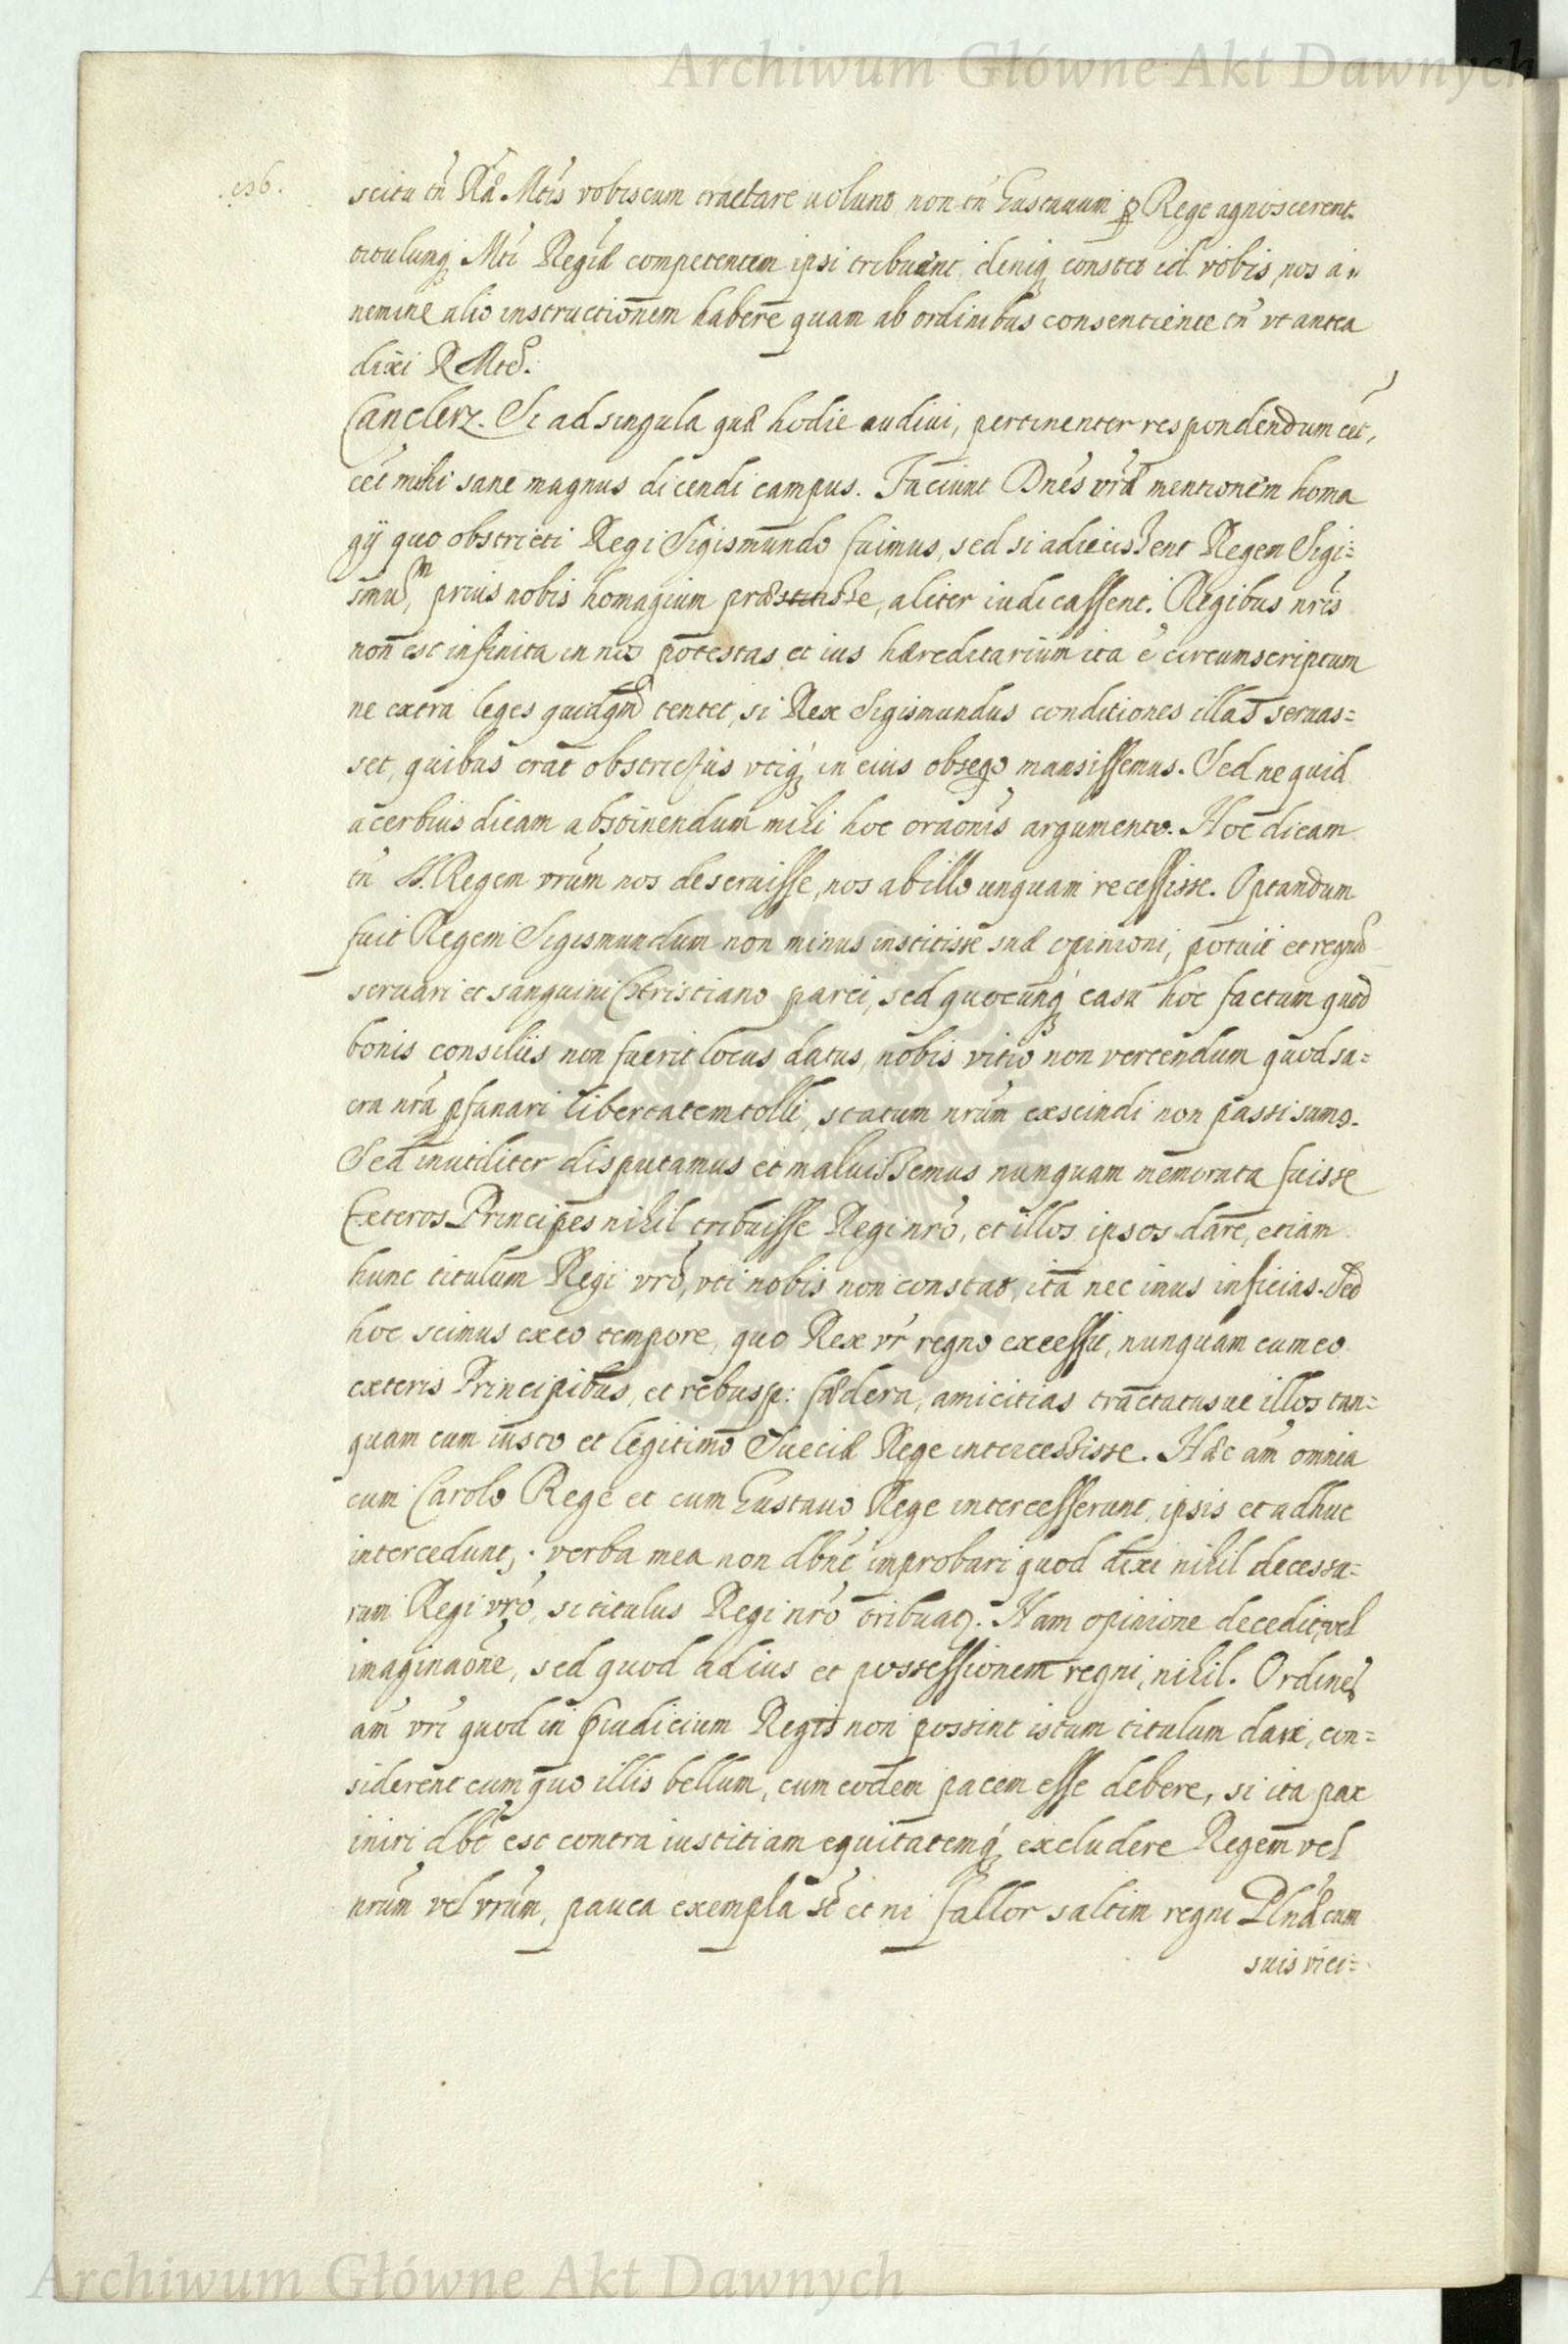 Archiwum Główne Akt Dawnych
scitu tn̄ Rae Mtis vobiscum tractare uolunt non tn̄ Gustauum ꝓ Rege agnoscerent
titulumq; Mti Regiae competentem ipsi tribuant, deniq; constet id vobis, nos a
nemine alio instructionem habere quam ab ordinibus consentiente tn̄ vt antea
dixi R Mte.
Canclerz. Si ad singula quae hodie audiui, pertinenter respondendum eēt,
eēt mihi sane magnus dicendi campus. Faciunt Dnēs vrāe mentionem homa
gÿ quo obstricti Regi Sigismundo fuimus, sed si adiecissent Regem Sigi=
smūm, prius nobis homagium praestitisse, aliter iudicassent. Regibus nrīs
non est infinita in nos potestas et ius haereditarium ita ē circumscriptum
ne extra leges quidqm̄ tentet, si Rex Sigismundus conditiones illas seruas=
set, quibus erat obstrictus vtiq; in eius obseqo mansissemus. Sed ne quid
acerbius dicam abstinendum mihi hoc oraōnis argumento. Hoc dicam
tn̄ S. Regem vrūm nos deseruisse, nos ab illo unquam recessisse. Optandum
fuit Regem Sigismundum non minus institisse suae opinioni, potuit et regno
seruari et sanguini Christiano parci, sed quocunq; casu hoc factum quod
bonis consiliis non fuerit locus datus, nobis vitio non vertendum quod sa=
cra nrā ꝓfanari libertatem tolli, statum nrūm exscindi non passi sumus.
Sed inutiliter disputamus et maluissemus nunquam memorata fuisse
Exteros Principes nihil tribuisse Regi nrō, et illos ipsos dare, etiam
hunc titulum Regi vrō, vti nobis non constat, ita nec imus inficias. Sed
hoc scimus ex eo tempore, quo Rex vr̄ regno excessit, nunquam cum eo
exteris Principibus, et rebusp: faedera, amicitias tractatusue illos tan=
quam cum iusto et legitimo Sueciae Rege intercessisse. Haec am̄ omnia
cum Carolo Rege et cum Gustauo Rege intercesserunt, ipsis et adhuc
intercedunt, verba mea non dbn̄t improbari quod dixi nihil decessu=
rum Regi vrō, si titulus Regi nrō tribuat. Nam opinione decedit, vel
imaginaōne, sed quod ad ius et possessionem regni, nihil. Ordines
am̄ vrī quod in p̄iudicium Regis non possint istum titulum dare, con=
siderent cum quo illis bellum, cum eodem pacem esse debere, si ita pax
iniri dbt̄ est contra iustitiam equitatemq; excludere Regem vel
nrūm vel vrūm, pauca exempla st̄ et ni fallor saltim regni Plnāe cum
suis vici=
Archiwum Główne Akt Dawnych